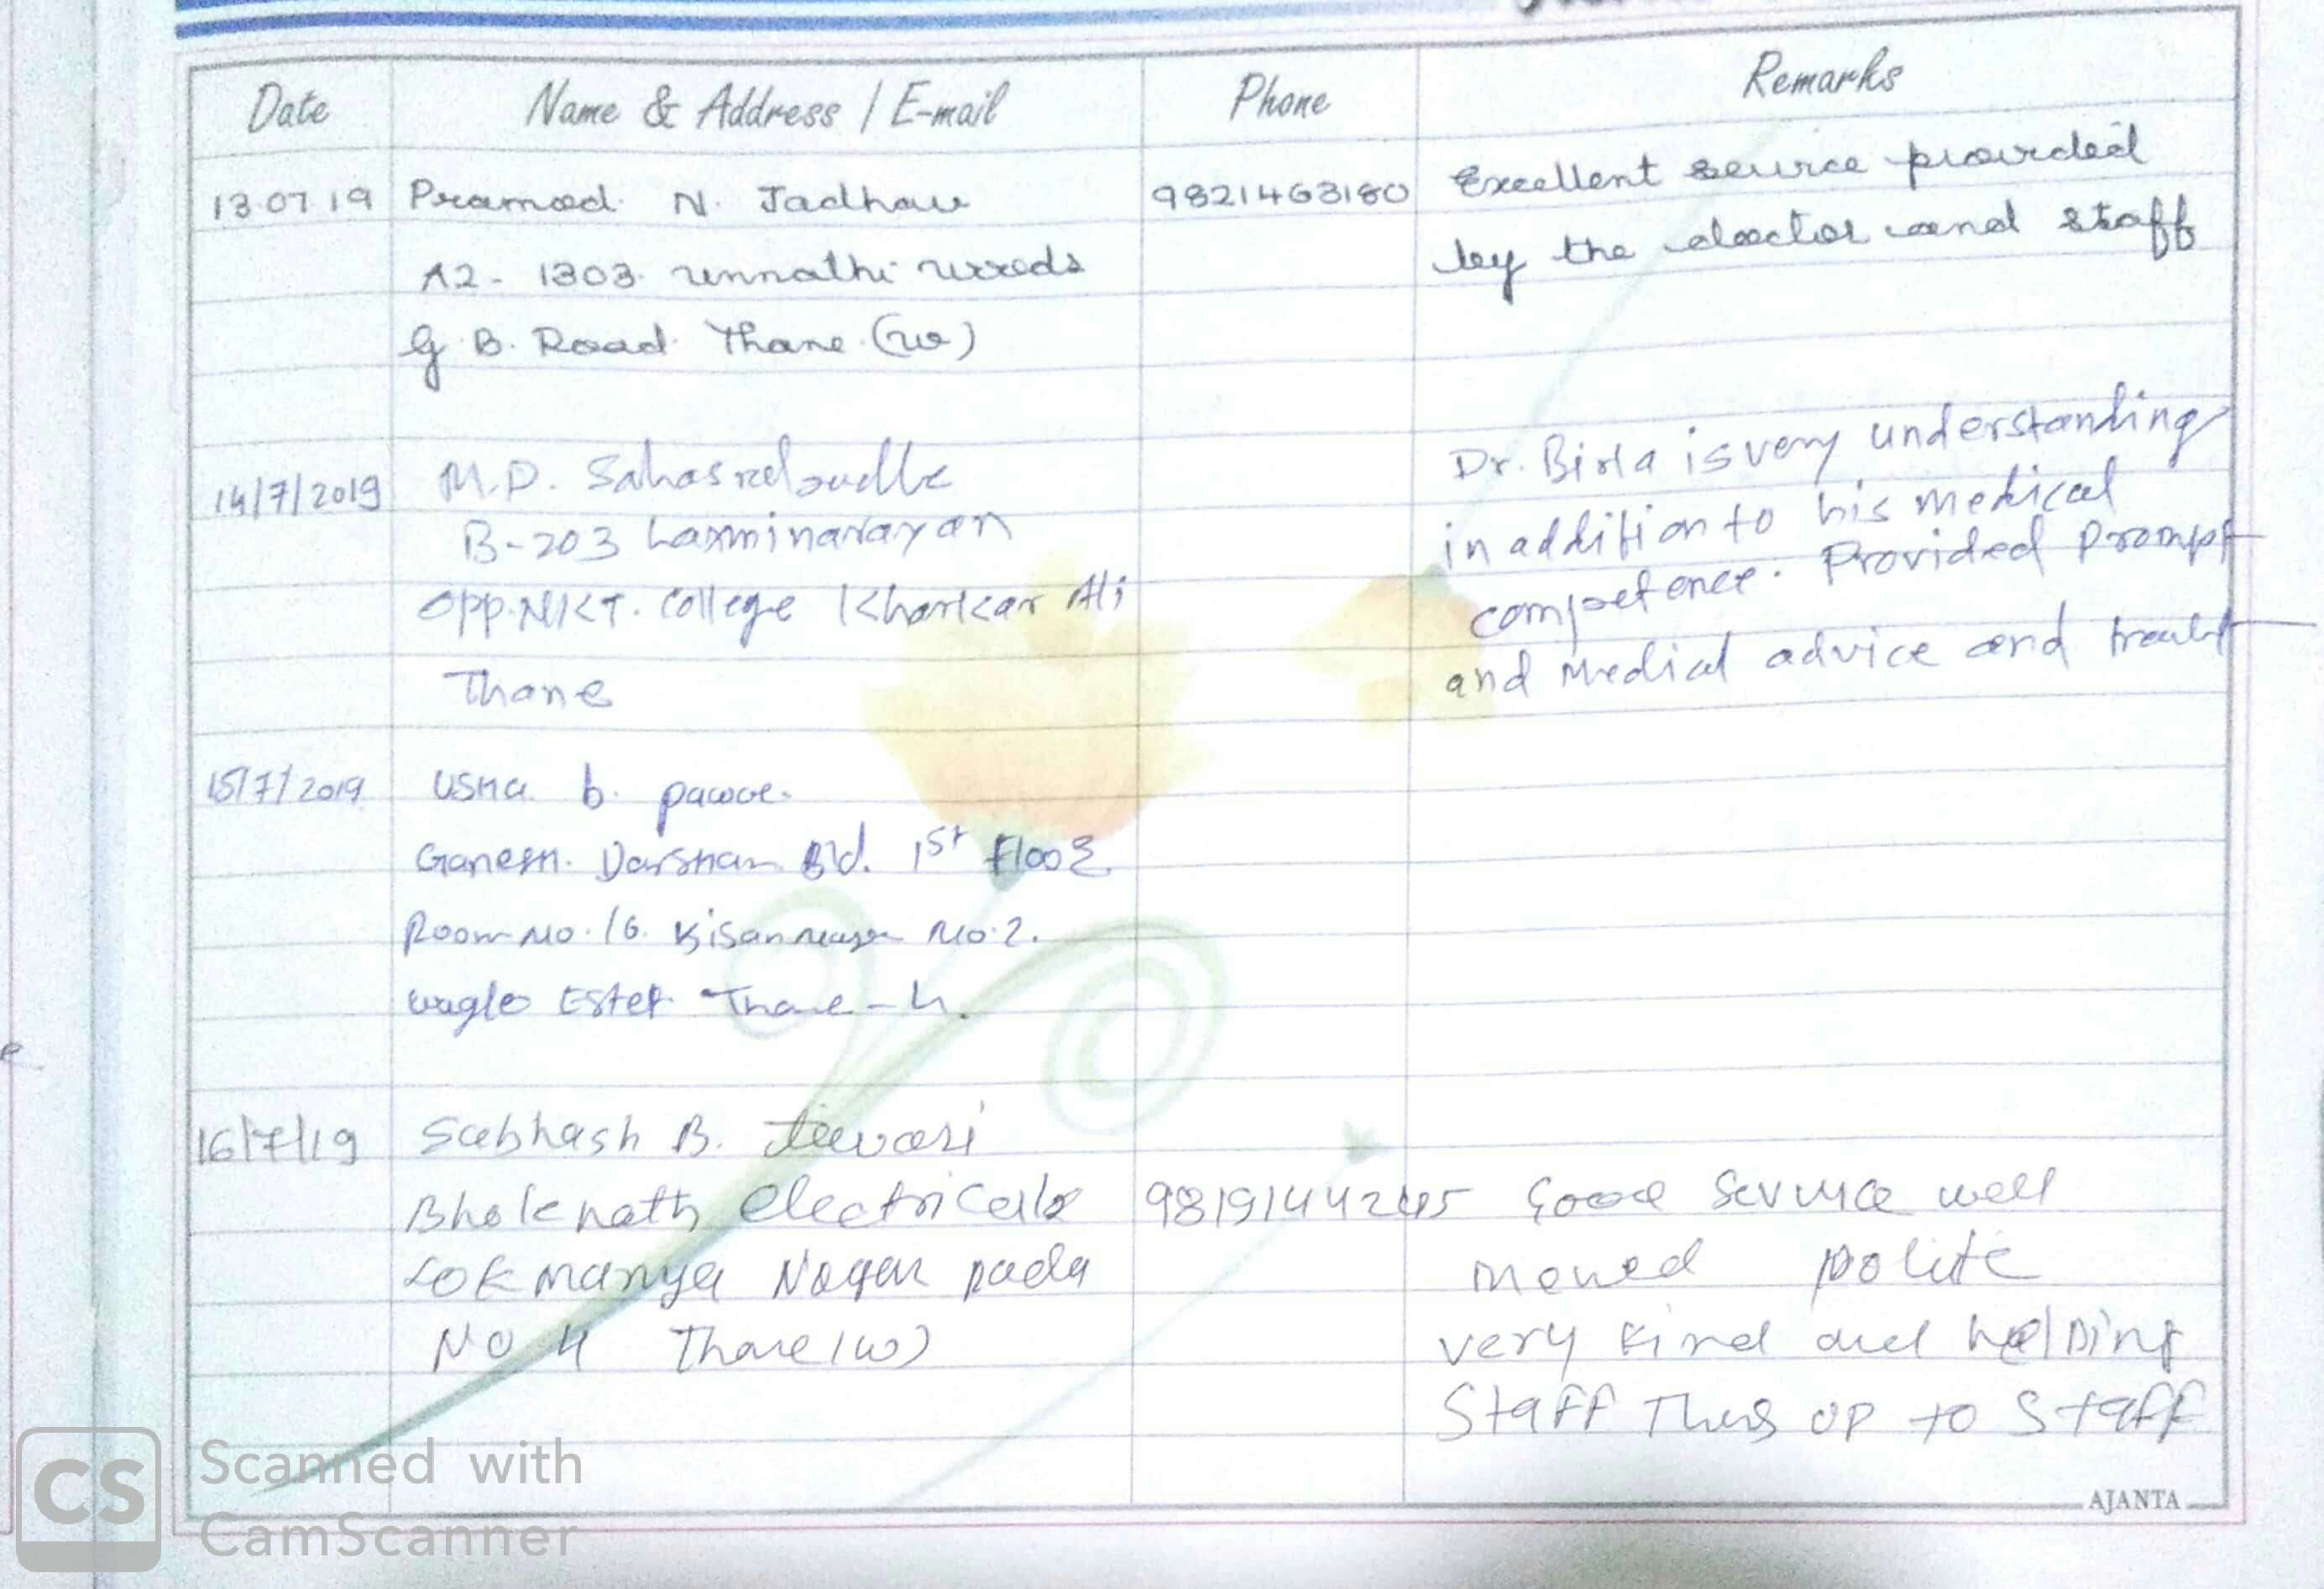 Date Name & Address / E-mail Phone Remarks
13.07.19 Pramod. N. Jadhav 9821463180 Excellent service provided
A2- 1303. unnathi woods by the doctor and staff
G.B. Road. Thane. (w)
14/7/2019 M.D. Dr. Birla is very understanding
B-203 Laxminarayan in addition to his medical
Opp. NKT. College Kharkar Ali competence. Provided Prompt
Thane and Medical advice and
15/7/2019 USHa. b. pawar.
Ganesh. Darshan Bld. 1st Floor
Room No. 16. Kisannagar No. 2.
wagle Estet. Thane - 4.
16/7/19 Subhash B. tiwari
Bholenath electricals Good Service well
Lokmanya Nagar pada polite
NO 4 Thane (w) very kind and helping
Staff Thus up to Staff
AJANTA
CS Scanned with
CamScanner